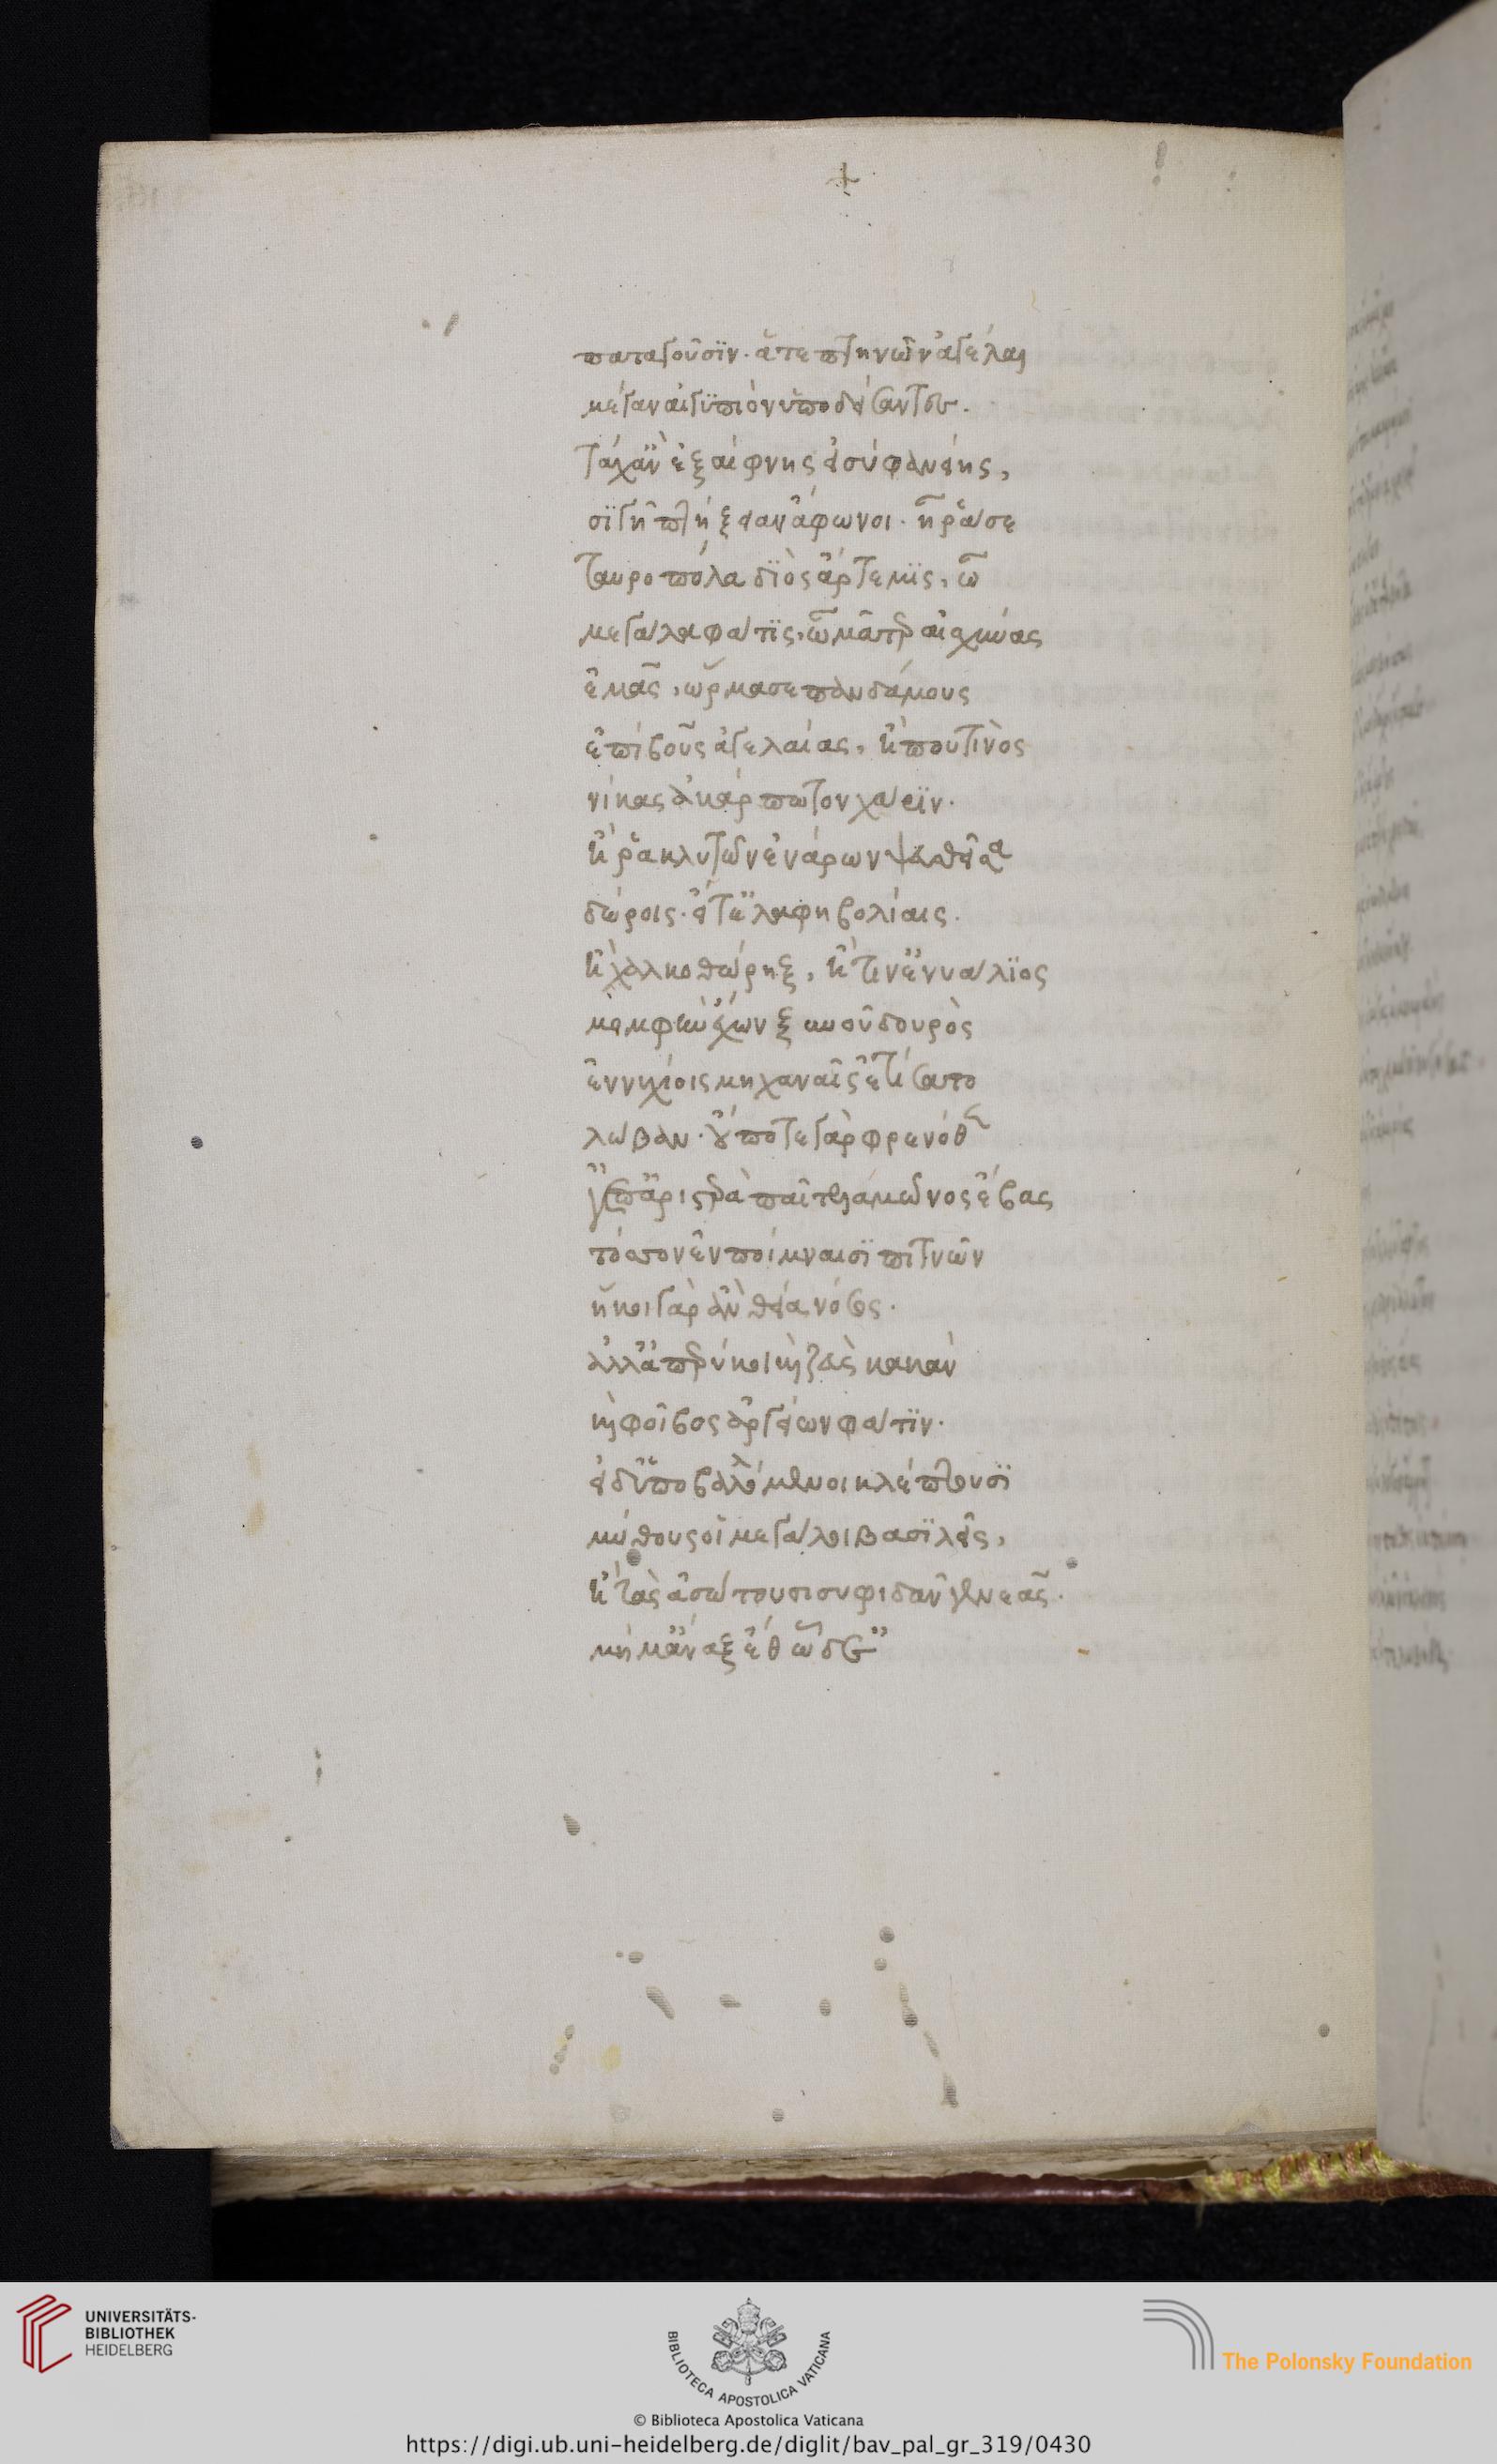 +
παταγοῦσϊν· ἅτε πτηνῶν ἀγέλαι
μέγαν αἰγϋπιὸν ὑποδείσαντες.
τάχ' ἂν ἐξαίφνης εἰ σὺ φανείης,
σϊγῇ πτήξειαν ἄφωνοι. ἦ ῥά σε
ταυροπόλα δϊὸς ἄρτεμϊς, ὦ
μεγάλα φάτϊς, ὦ μᾶτερ αἰσχύνας
ἐμᾶς, ὥρμασε πανδάμους
ἐπὶ βοῦς ἀγελαίας, ἤ που τινὸς
νίκας ἀκάρπωτον χάρϊν.
ἤ ῥα κλυτῶν ἐνάρων ψευσθεῖσα
δώροις· εἴτ' ἐλαφηβολίαις.
ἢ χαλκοθώρηξ, ἤ τιν' ἐνυάλϊος
μομφὰν ἔχων ξυνοῦ δορὸς
ἐννυχίοις μηχαναῖς ἐτίσατο
λώβαν. οὔποτε γὰρ φρενόθεν
γ' ἐπ' ἀριστερὰ παῖ τελαμῶνος ἔβας
τόσσον ἐν ποίμναισϊ πιτνῶν
ἥκοι γὰρ ἂν θεία νόσος.
ἀλλ' ἀπερύκοι καὶ ζεὺς κακὰν
καὶ φοῖβος ἀργείων φάτϊν.
εἰ δ' ὑποβαλλόμενοι κλέπτουσϊ
μύθους οἱ μεγάλοι βασϊλεῖς,
ἢ τᾶς ἀσώτου σισυφιδᾶν γενεᾶς.
μὴ μὴ ἄναξ ἔθ' ὧδ'
UNIVERSITÄTS-
BIBLIOTHEK
HEIDELBERG
BIBLIOTECA APOSTOLICA VATICANA
The Polonsky Foundation
© Biblioteca Apostolica Vaticana
https://digi.ub.uni-heidelberg.de/diglit/bav_pal_gr_319/0430